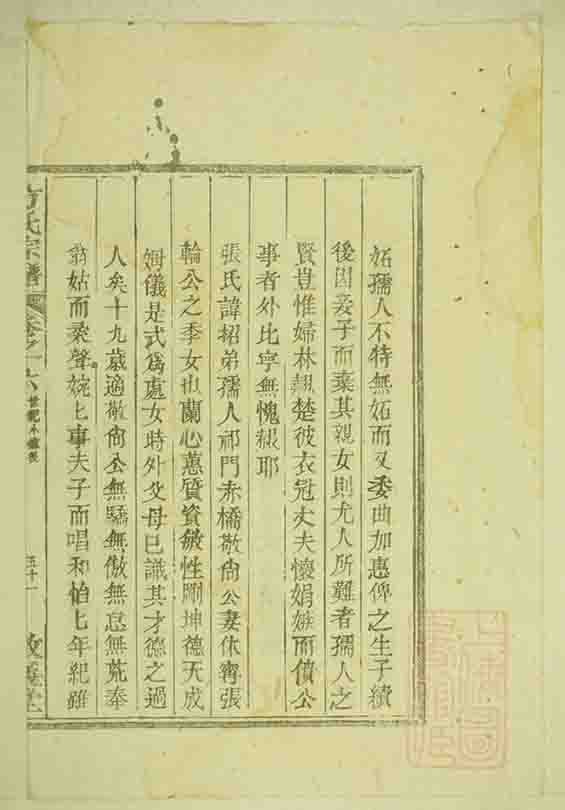 妬孺人不特無妬而又委曲加惠俾之生子續
後因妾子而棄其親女則尤人所難者孺人之
賢豈惟婦林翹楚彼衣冠丈夫懷娟嫉而僨公
事者外比寧無愧赧耶
張氏諱招弟孺人祁門赤橋敬尚公妻休甯張
輪公之季女也蘭心蕙質資敏性剛坤德天成
姆儀是式爲處女時外父母已識其才德之過
人矣十九歲適敬尚公無驕無傲無怠無荒奉
翁姑而柔聲婉匕事夫子而唱和怡匕年紀雖
方氏宗譜 卷之十八 世系小傳 五十一